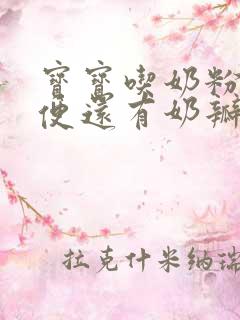 寶寶喫奶粉
便還有奶瓣
拉克什米納瑞